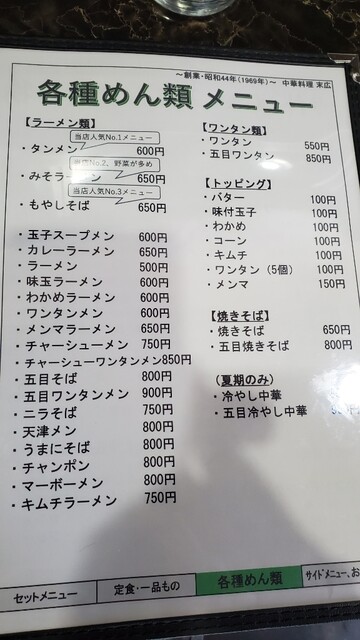 ～創業・昭和44年(1969年)～ 中華料理 末広
各種めん類 メニュー
【ラーメン類】
当店人気No.1メニュー
・タンメン 600円
当店No.2。野菜が多め
・みそラーメン 650円
当店人気No.3メニュー
・もやしそば 650円
・玉子スープメン 600円
・カレーラーメン 650円
・ラーメン 500円
・味玉ラーメン 600円
・わかめラーメン 600円
・ワンタンメン 600円
・メンマラーメン 650円
・チャーシューメン 750円
・チャーシューワンタンメン850円
・五目そば 800円
・五目ワンタンメン 900円
・ニラそば 750円
・天津メン 800円
・うまにそば 800円
・チャンポン 800円
・マーボーメン 800円
・キムチラーメン 750円
【ワンタン類】
・ワンタン 550円
・五目ワンタン 850円
【トッピング】
・バター 100円
・味付玉子 100円
・わかめ 100円
・コーン 100円
・キムチ 100円
・ワンタン（5個） 100円
・メンマ 150円
【焼きそば】
・焼きそば 650円
・五目焼きそば 800円
（夏期のみ）
・冷やし中華
・五目冷やし中華
セットメニュー
定食・一品もの
各種めん類
サイドメニュー、お